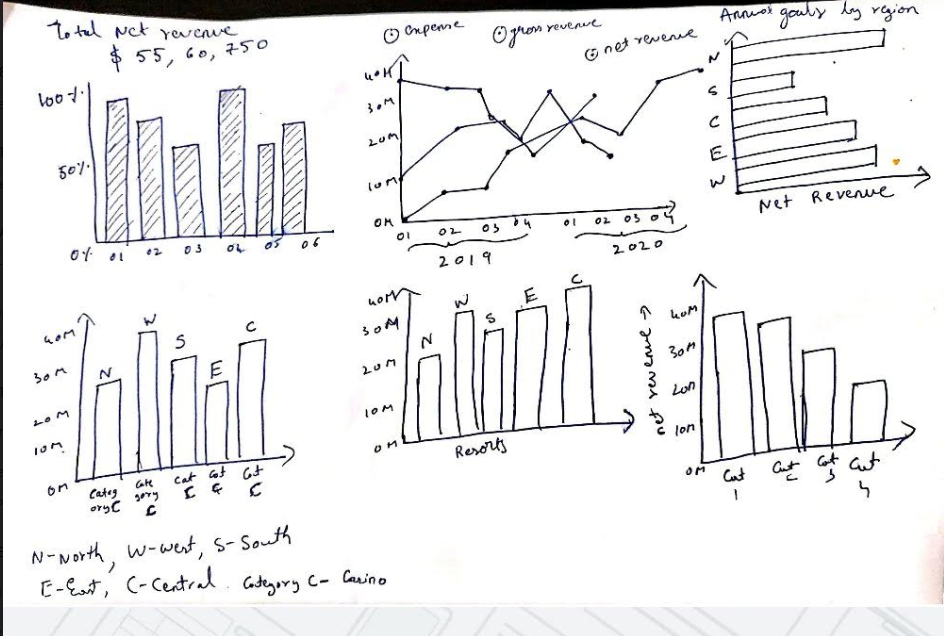 Total Net revenue
$ 55, 60, 750
100%
50%
0%
01 02 03 04 05 06
expense
gross revenue
net revenue
40M
30M
20M
10M
0M
01 02 03 04 01 02 03 04
2019
2020
Annual goals by region
N
S
C
E
W
Net Revenue
40M
30M
20M
10M
0M
N W S E C
Categ
oryC
Cate
gory
C
Cat
C
Cat
C
Cat
C
40M
30M
20M
10M
0M
N W S E C
Resorts
net revenue →
40M
30M
20M
10M
0M
Cat
1
Cat
Cat
3
Cat
4
N-North, W-west, S-South
E-East, C-Central. Category C- Casino